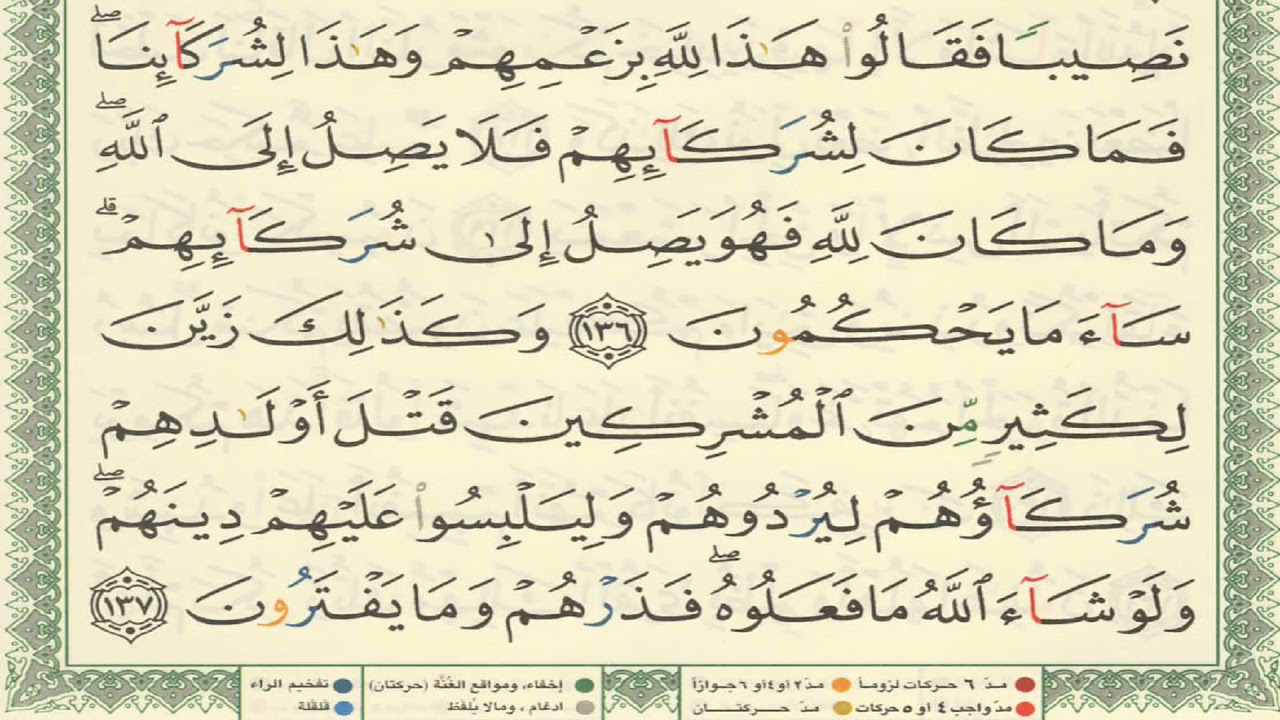 نَصِيبًا فَقَالُوا۟ هَـٰذَا لِلَّهِ بِزَعْمِهِمْ وَهَـٰذَا لِشُرَكَآئِنَا ۖ
فَمَا كَانَ لِشُرَكَآئِهِمْ فَلَا يَصِلُ إِلَى ٱللَّهِ ۖ
وَمَا كَانَ لِلَّهِ فَهُوَ يَصِلُ إِلَىٰ شُرَكَآئِهِمْ ۗ
سَآءَ مَا يَحْكُمُونَ ١٣٦ وَكَذَٰلِكَ زَيَّنَ
لِكَثِيرٍ مِّنَ ٱلْمُشْرِكِينَ قَتْلَ أَوْلَـٰدِهِمْ
شُرَكَآؤُهُمْ لِيُرْدُوهُمْ وَلِيَلْبِسُوا۟ عَلَيْهِمْ دِينَهُمْ ۖ
وَلَوْ شَآءَ ٱللَّهُ مَا فَعَلُوهُ ۖ فَذَرْهُمْ وَمَا يَفْتَرُونَ ١٣٧
مدّ ٦ حركات لزوماً مدّ ٢ او ٤ او ٦ جوازاً إخفاء، ومواقع الغُنَّة (حركتان) تفخيم الراء
مدّ واجب ٤ او ٥ حركات مدّ حركتان ادغام، ومالا يُلفَظ قلقلة